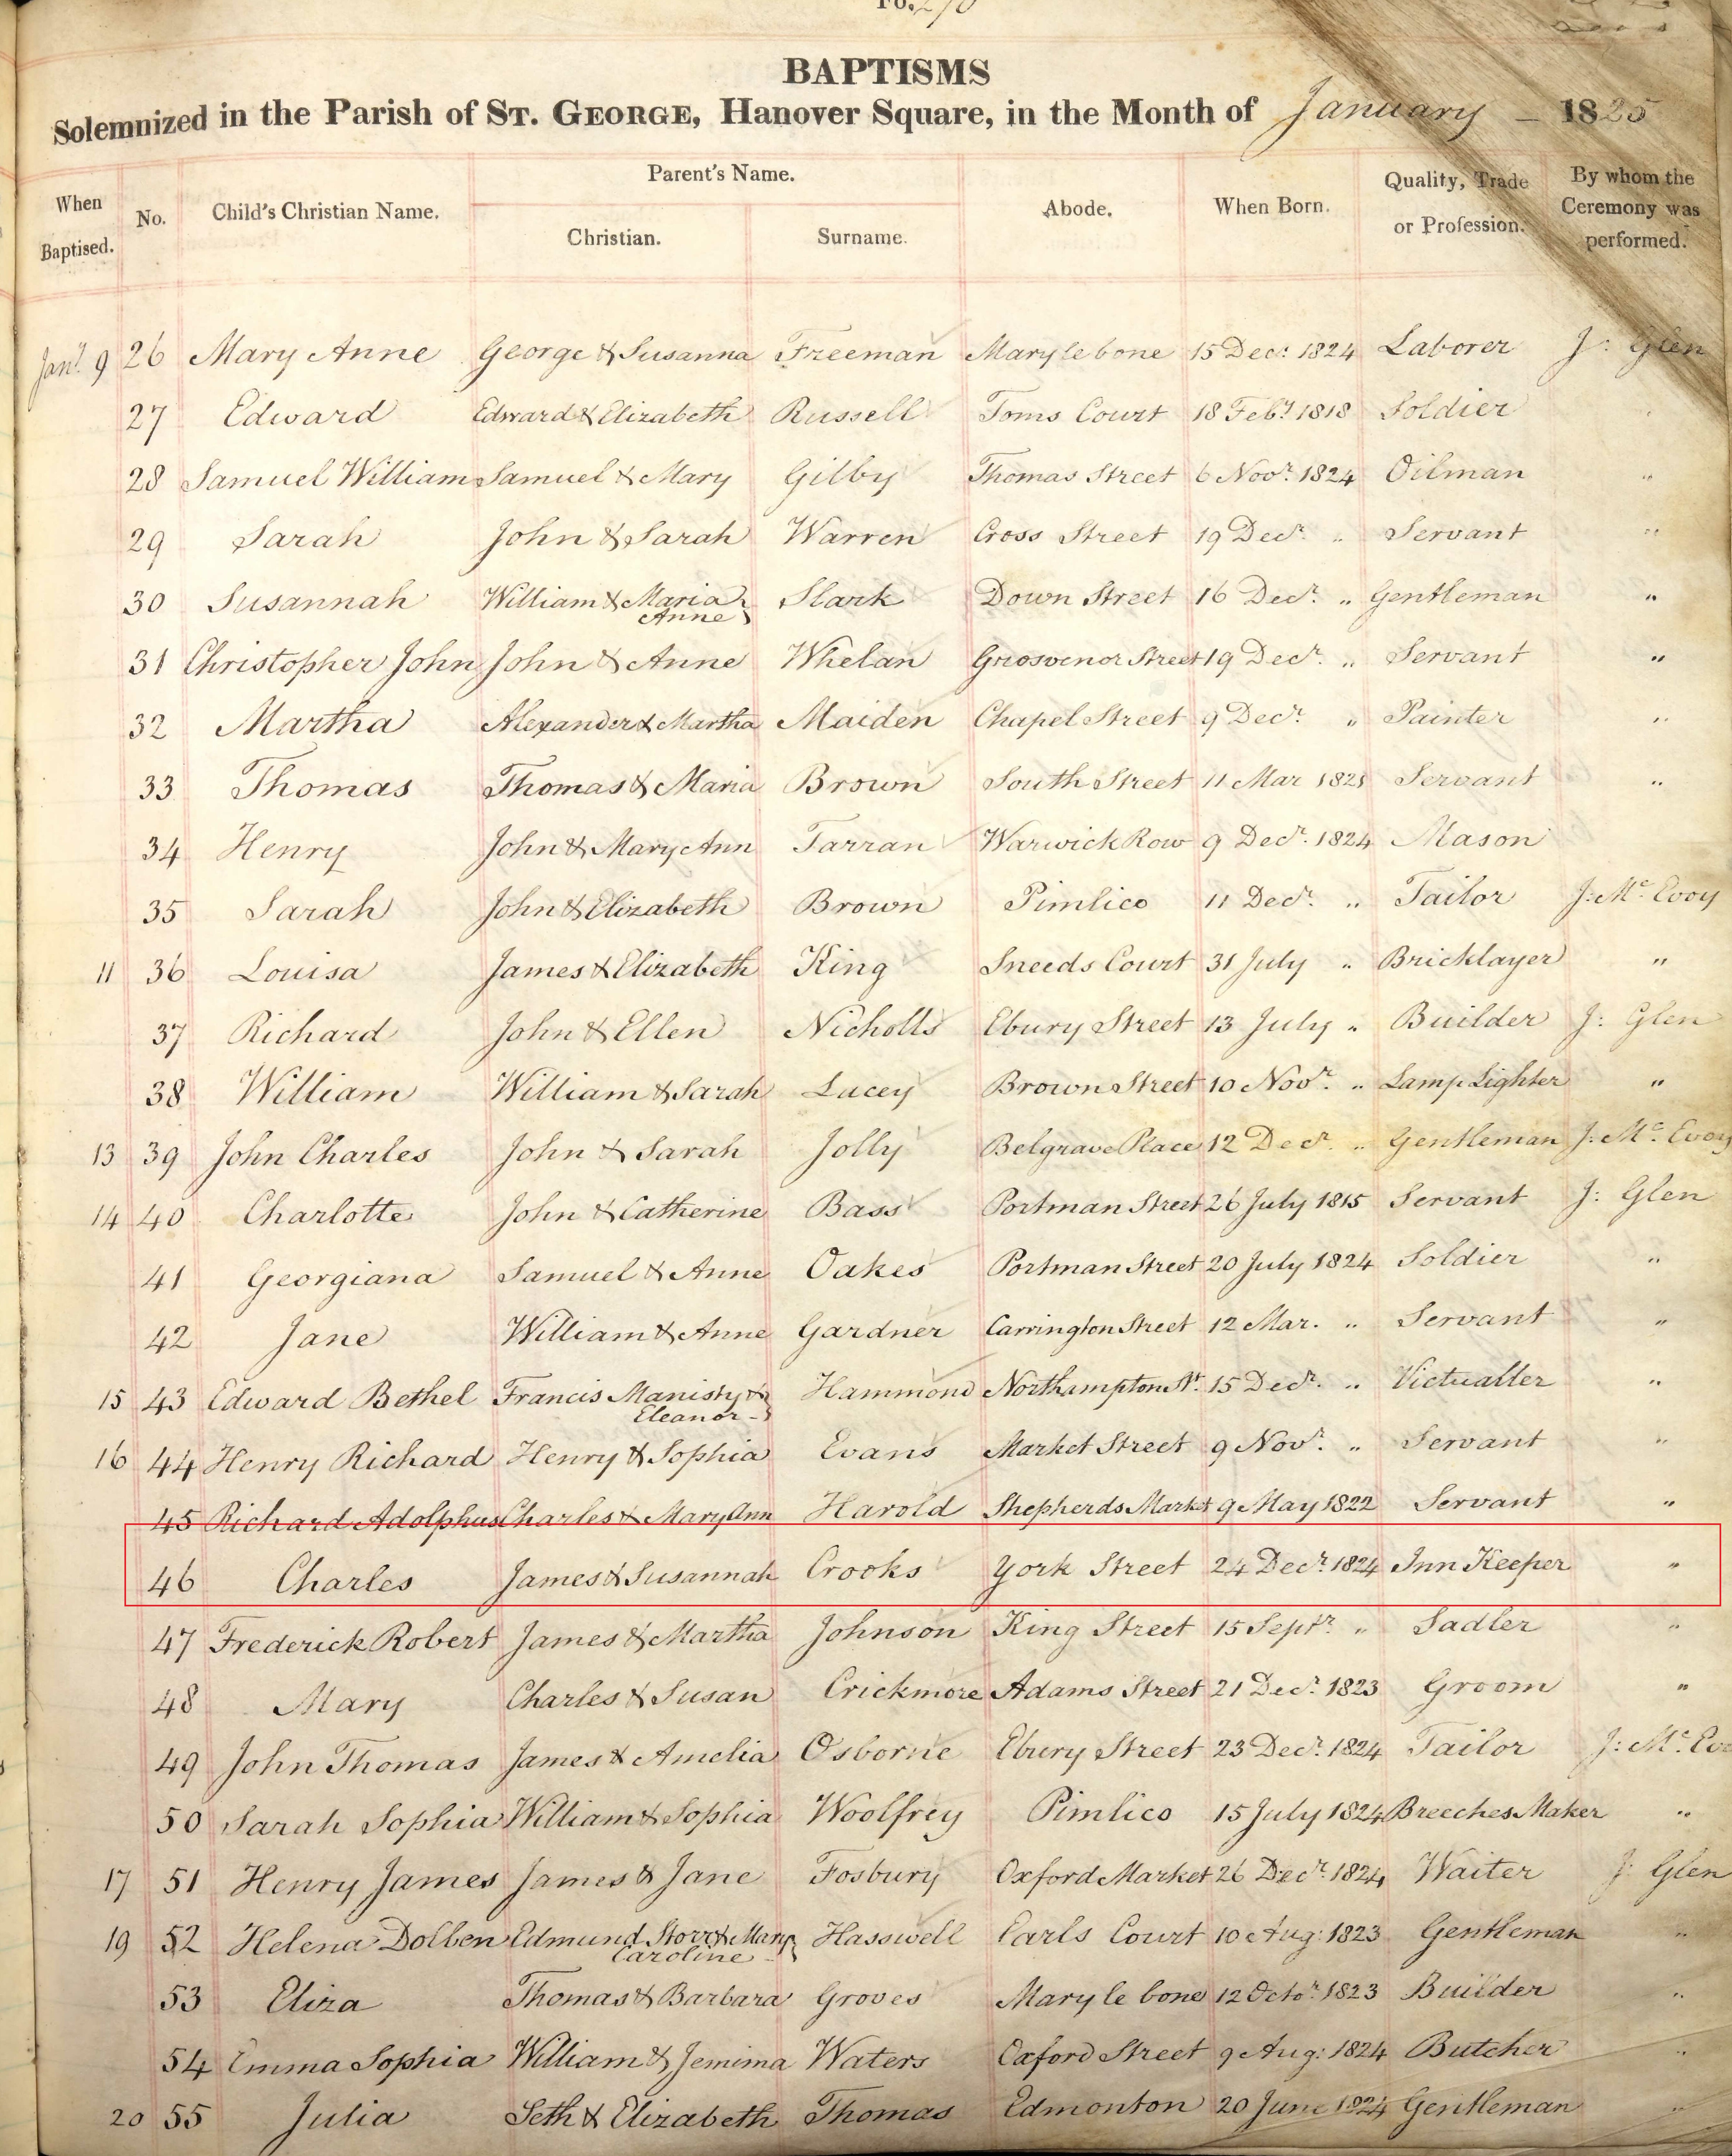 Fo. 270
BAPTISMS
Solemnized in the Parish of ST. GEORGE, Hanover Square, in the Month of January – 1825
When Baptised. No. Child's Christian Name. Parent's Name. Christian. Surname. Abode. When Born. Quality, Trade or Profession. By whom the Ceremony was performed.
Jany. 9 26 Mary Anne George & Susanna Freeman Marylebone 15 Decr. 1824 Laborer J: Glen
27 Edward Edward & Elizabeth Russell Toms Court 18 Feby. 1818 Soldier
28 Samuel William Samuel & Mary Gilby Thomas Street 6 Novr. 1824 Oilman "
29 Sarah John & Sarah Warren Cross Street 19 Decr. " Servant "
30 Susannah William & Maria Anne Slark Down Street 16 Decr. " Gentleman "
31 Christopher John John & Anne Whelan Grosvenor Street 19 Decr. " Servant "
32 Martha Alexander & Martha Maiden Chapel Street 9 Decr. " Painter "
33 Thomas Thomas & Maria Brown South Street 11 Mar Servant "
34 Henry John & Mary Ann Tarran Warwick Row 9 Decr. 1824 Mason
35 Sarah John & Elizabeth Brown Pimlico 11 Decr. " Tailor J: Mc. Evoy
11 36 Louisa James & Elizabeth King Sneeds Court 31 July " Bricklayer "
37 Richard John & Ellen Nicholls Ebury Street 13 July " Builder J: Glen
38 William William & Sarah Lucey Brown Street 10 Novr. " Lamp Lighter "
13 39 John Charles John & Sarah Jolly Belgrave Place 12 Decr. " Gentleman J: Mc. Evoy
14 40 Charlotte John & Catherine Bass Portman Street 26 July 1815 Servant J: Glen
41 Georgiana Samuel & Anne Oakes Portman Street 20 July 1824 Soldier "
42 Jane William & Anne Gardner Carrington Street 12 Mar. " Servant "
15 43 Edward Bethel Francis Manisty & Eleanor Hammond Northampton St. 15 Decr. " Victualler "
16 44 Henry Richard Henry & Sophia Evans Market Street 9 Novr. " Servant "
45 Richard Adolphus Charles & Mary Ann Harold Shepherds Market 9 May 1822 Servant "
46 Charles James & Susannah Crooks York Street 24 Decr. 1824 Inn Keeper "
47 Frederick Robert James & Martha Johnson King Street 15 Septr. " Sadler "
48 Mary Charles & Susan Crickmore Adams Street 21 Decr. 1823 Groom "
49 John Thomas James & Amelia Osborne Ebury Street 23 Decr. 1824 Tailor J: Mc. Evo
50 Sarah Sophia William & Sophia Woolfrey Pimlico 15 July 1824 Breeches Maker "
17 51 Henry James James & Jane Fosbury Oxford Market 26 Decr. 1824 Waiter J: Glen
19 52 Helena Dolben Edmund Storr & Mary Caroline Hasswell Earls Court 10 Aug: 1823 Gentleman "
53 Eliza Thomas & Barbara Groves Mary le bone 12 Octor. 1823 Builder "
54 Emma Sophia William & Jemima Waters Oxford Street 9 Aug: 1824 Butcher "
20 55 Julia Seth & Elizabeth Thomas Edmonton 20 June 1824 Gentleman "